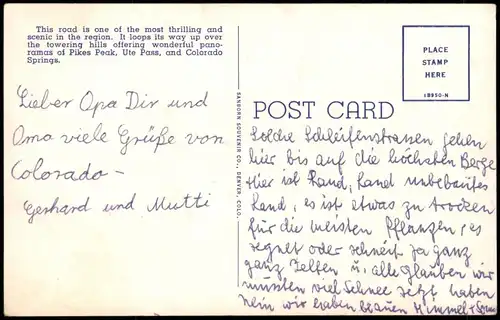 This road is one of the most thrilling and
scenic in the region. It loops its way up over
the towering hills offering wonderful pano-
ramas of Pikes Peak, Ute Pass, and Colorado
Springs.
PLACE
STAMP
HERE
1B950-N
SANBORN SOUVENIR CO., DENVER, COLO.
POST CARD
Lieber Opa Dir und
Oma viele Grüße von
Colorado –
Gerhard und Mutti
Solche Schleifenstrassen gehen
hier bis auf die höchsten Berge
Hier ist Land, Land unbebautes
Land, es ist etwas zu trocken
für die meisten Pflanzen, es
regnet oder schneit ja ganz
ganz selten u. alle glauben wir
müssten viel Schnee jetzt haben
Nein wir haben blauen Himmel +